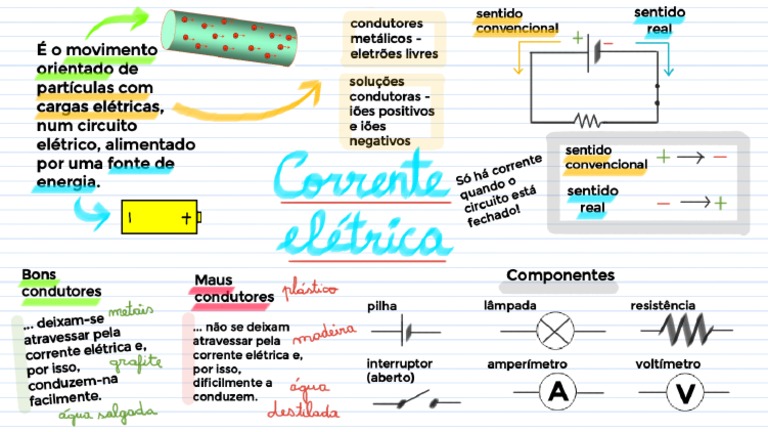 É o movimento
orientado de
partículas com
cargas elétricas,
num circuito
elétrico, alimentado
por uma fonte de
energia.
condutores
metálicos -
eletrões livres
soluções
condutoras -
iões positivos
e iões
negativos
sentido
convencional
sentido
real
+ −
Corrente
elétrica
Só há corrente
quando o
circuito está
fechado!
sentido
convencional + → −
sentido
real − → +
Bons
condutores
... deixam-se
atravessar pela
corrente elétrica e,
por isso,
conduzem-na
facilmente.
metais
grafite
água salgada
Maus
condutores
... não se deixam
atravessar pela
corrente elétrica e,
por isso,
dificilmente a
conduzem.
plástico
madeira
água
destilada
Componentes
pilha
lâmpada
resistência
interruptor
(aberto)
amperímetro
A
voltímetro
V